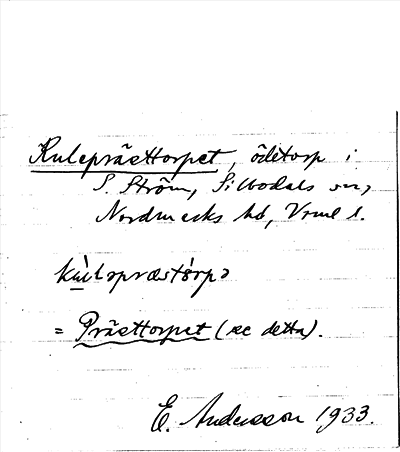 Kuleprästtorpet, ödetorp i
S. Ström, Silbodals sn,
Nordmarks hd, Vrml l.
= Prästtorpet (se detta).
E. Andersson 1933.